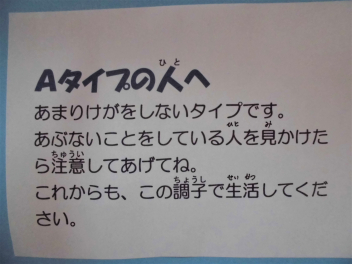 Aタイプの人へ
あまりけがをしないタイプです。
あぶないことをしている人を見かけた
ら注意してあげてね。
これからも、この調子で生活してくだ
さい。